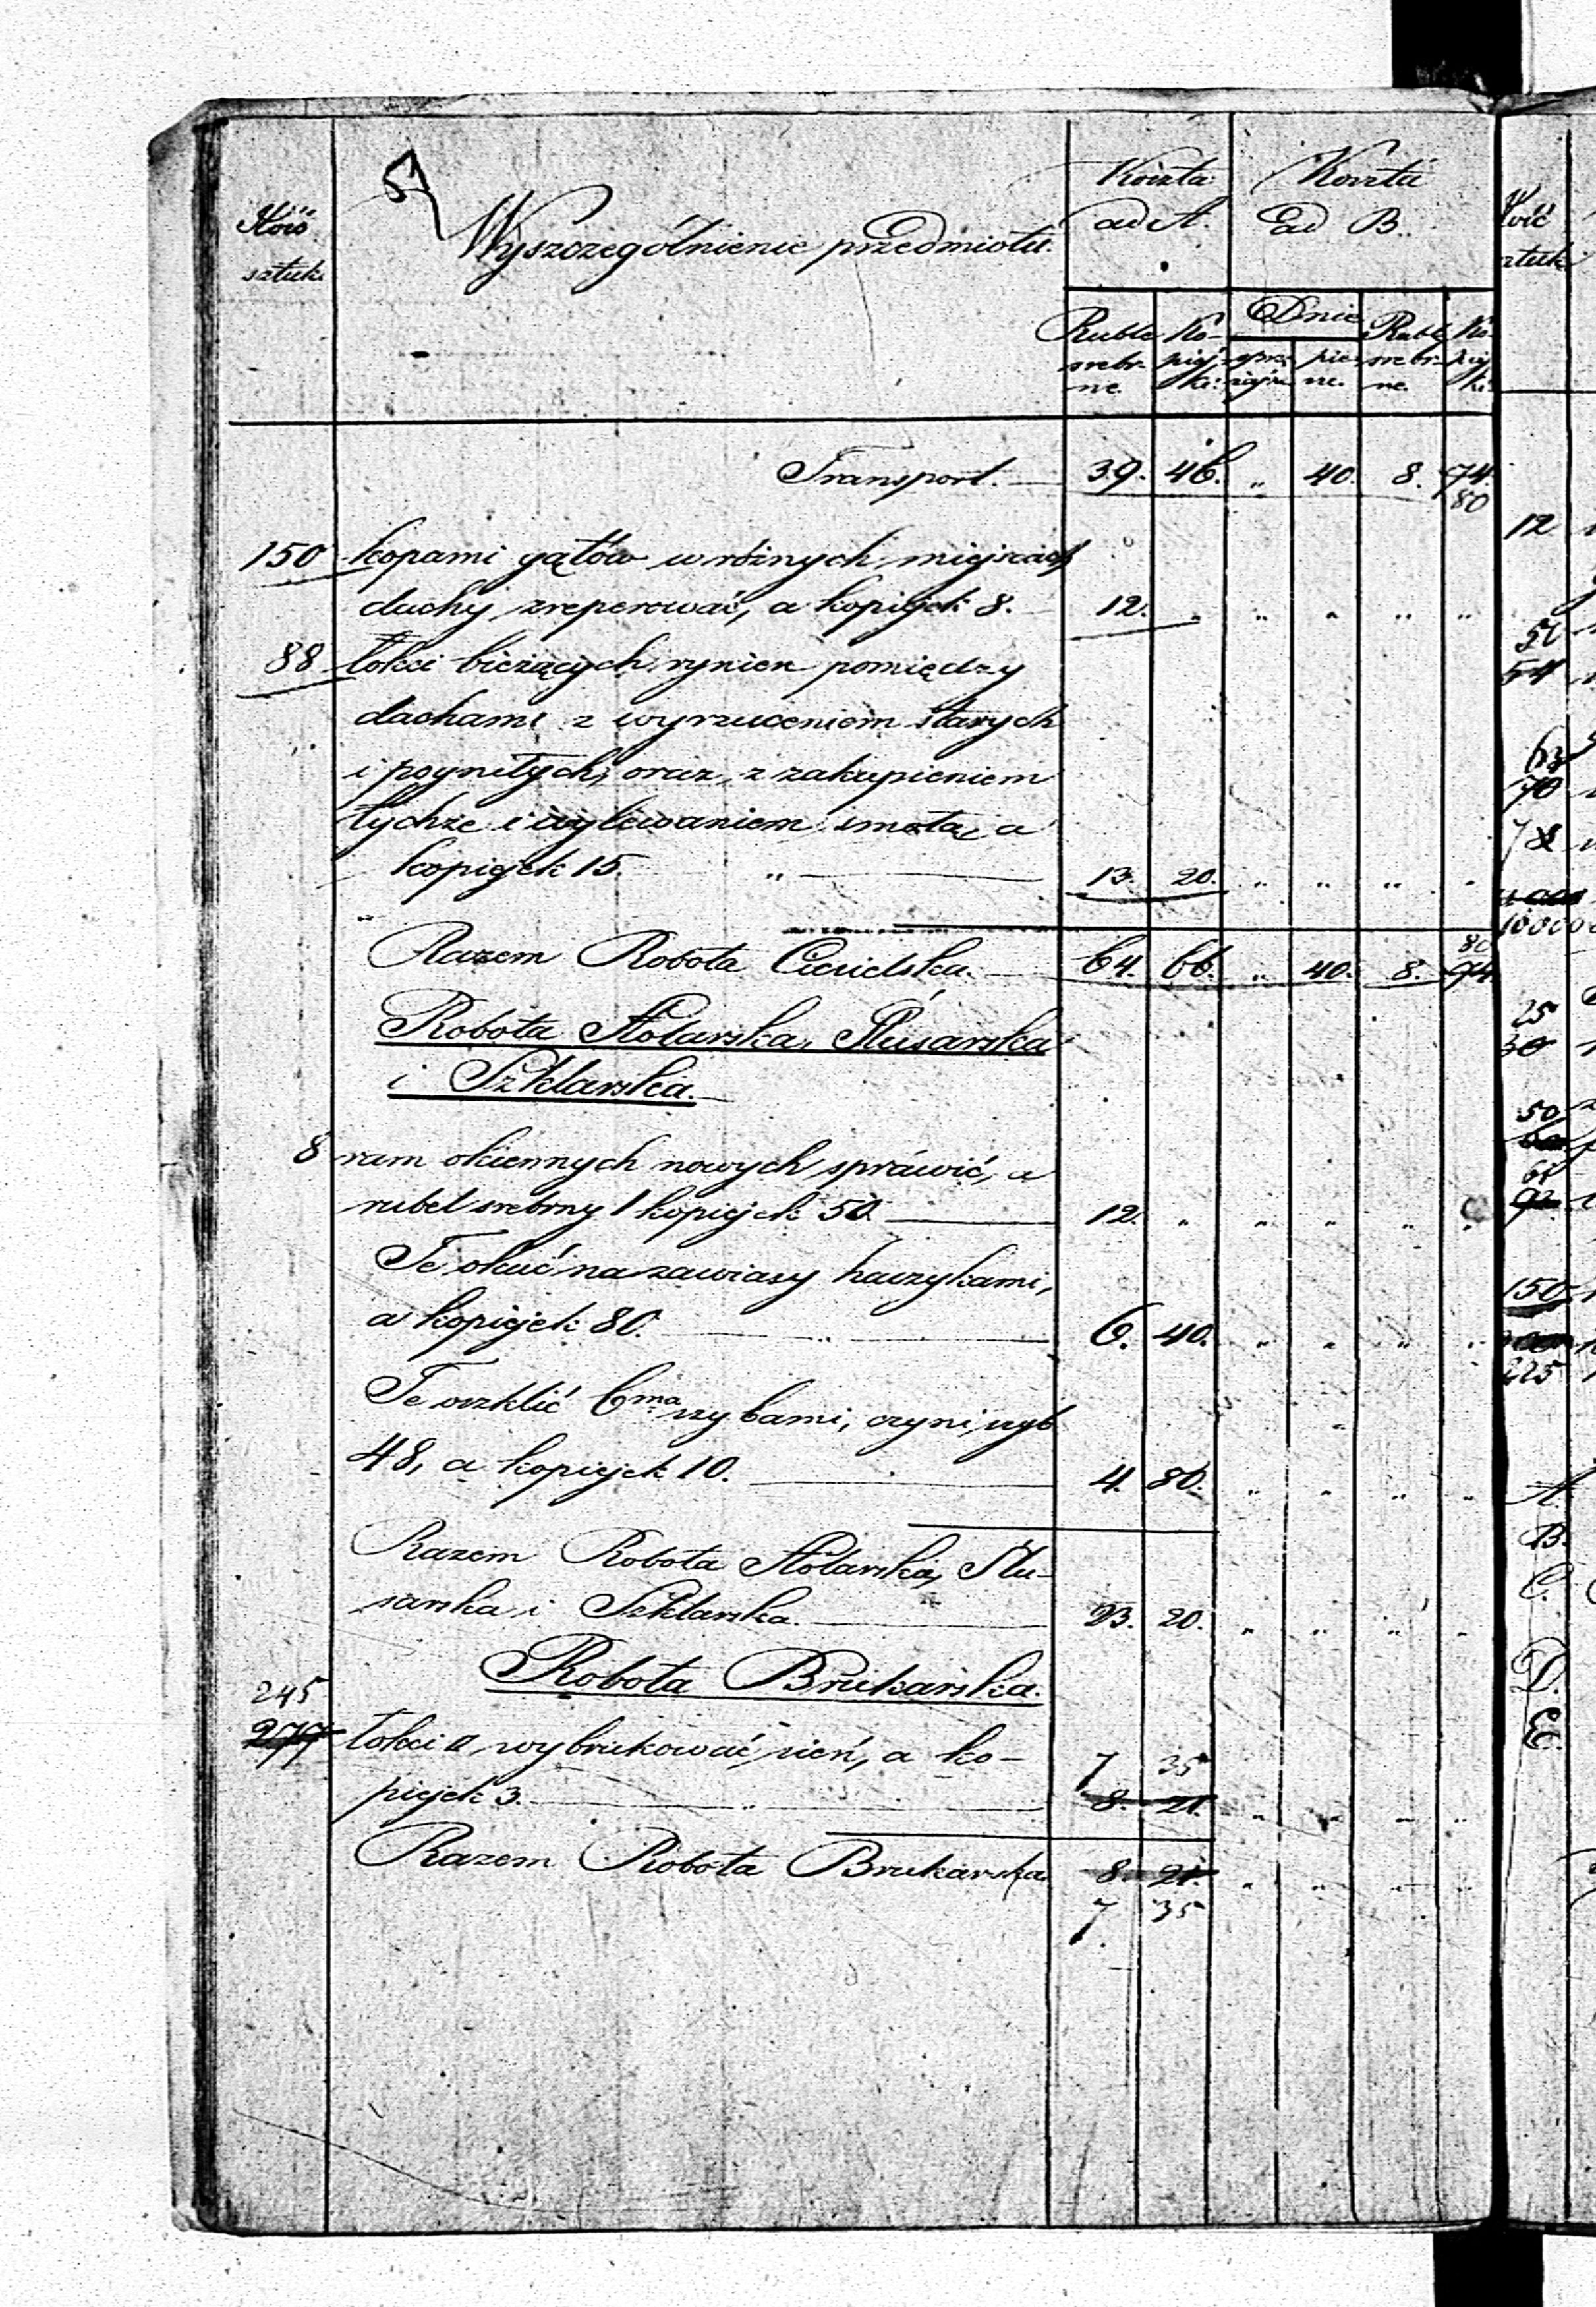 57
Ilość sztuk Wyszczególnienie przedmiotu. Koszta ad A. Koszta ad B.
Ruble srebrne. Kopiejki Dnie sprzężajne piesze. Ruble srebrne. Kopiejki
Transport. 39. 46. " 40. 8. 74.
80
150 kopami gątów w różnych miejscach
dachy zreperować, a kopiejek 8. 12. " " " " "
88 łokci bieżących rynien pomiędzy
dachami z wyrzuceniem starych
i pognitych, oraz z zakupieniem
tychże i wylewaniem smołą, a
kopiejek 15. " 13. 20. " " " "
80
Razem Robota Ciesielska. 64. 66. " 40. 8. 74.
Robota Stolarska, Ślusarska
i Szklarska.
8 ram okiennych nowych sprawić, a
rubel srebrny 1 kopiejek 50. 12. " " " " "
Te okuć na zawiasy haczykami,
a kopiejek 80. " 6. 40. " " " "
Te oszklić 6ma szybami, czyni szyb
48, a kopiejek 10. 4. 80. " " " "
Razem Robota Stolarska, Ślu-
sarska i Szklarska. 23. 20. " " " "
Robota Brukarska.
245
277 łokci □ wybrukować sień, a ko- 7 35
piejek 3. " 8. 21. " " " "
Razem Robota Brukarska 8. 21. " " " "
7. 35
Ilość
sztuk
12
50
54
63
70
78
10000
25
30
50
61
92
150
225
A.
B.
C.
D.
E.